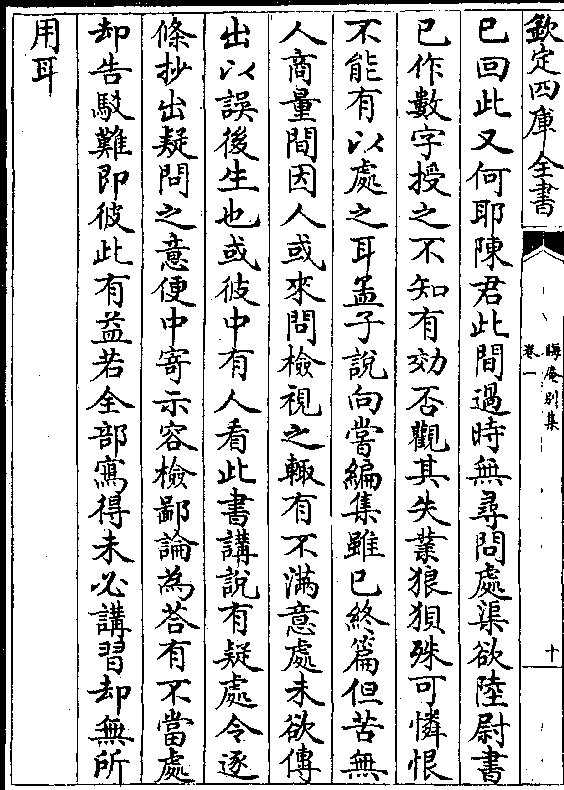 欽定四庫全書
晦庵別集
卷一
十
已回此又何耶陳君此間過時無尋問處渠欲陸尉書
已作數字授之不知有効否觀其失業狼狽殊可憐恨
不能有以處之耳孟子說向嘗編集雖已終篇但苦無
人商量間因人或來問檢視之輙有不滿意處未欲傳
出以誤後生也或彼中有人看此書講說有疑處令逐
條抄出疑問之意便中寄示容檢鄙論為荅有不當處
却告駁難即彼此有益若全部寫得未必講習却無所
用耳